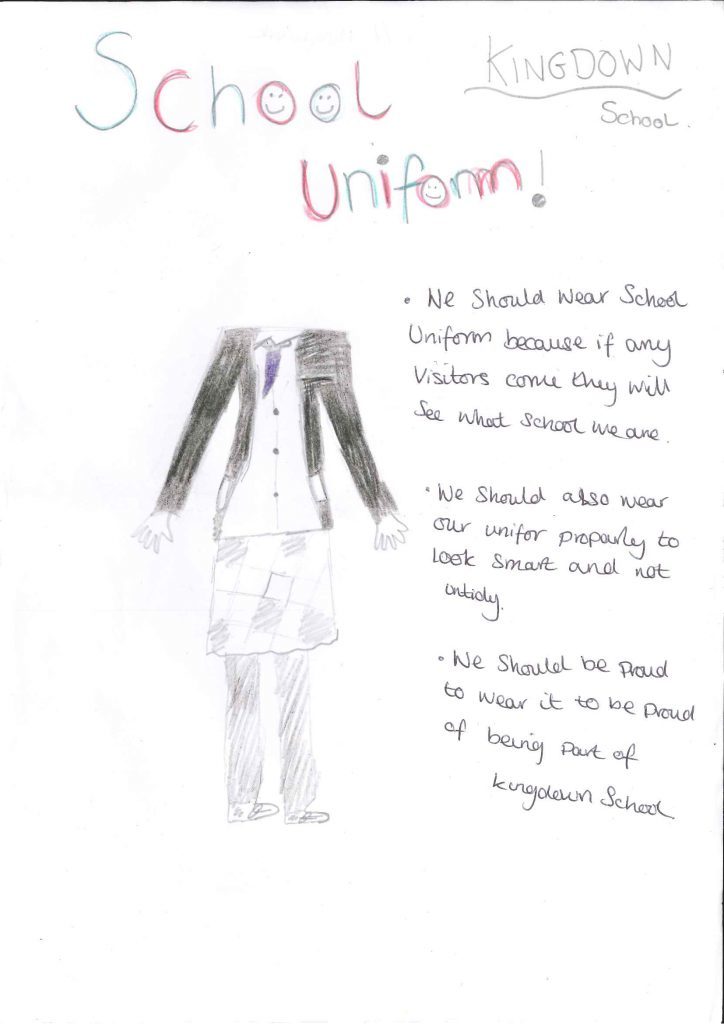 School
Uniform!
KINGDOWN
School.
• We Should Wear School
Uniform because if any
Visitors come they will
See what School we are.
• We should also wear
our unifor proparly to
Look Smart and not
untidy.
• We Should be Proud
to wear it to be proud
of being Part of
kingdown School